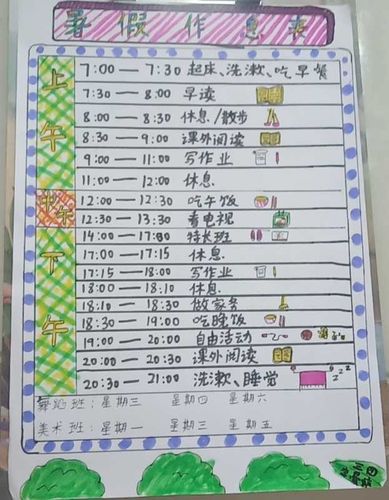 暑假作息表
上午
7:00 — 7:30 起床、洗漱、吃早餐
7:30 — 8:00 早读
8:00 — 8:30 休息/散步
8:30 — 9:00 课外阅读
9:00 — 11:00 写作业
11:00 — 12:00 休息
中午
12:00 — 12:30 吃午饭
12:30 — 13:30 看电视
下午
14:00 — 17:00 特长班
17:00 — 17:15 休息
17:15 — 18:00 写作业
18:00 — 18:10 休息
18:10 — 18:30 做家务
18:30 — 19:00 吃晚饭
19:00 — 20:00 自由活动
20:00 — 20:30 课外阅读
20:30 — 21:00 洗漱、睡觉
舞蹈班:星期三 星期四 星期六
美术班:星期一 星期三 星期五
三四